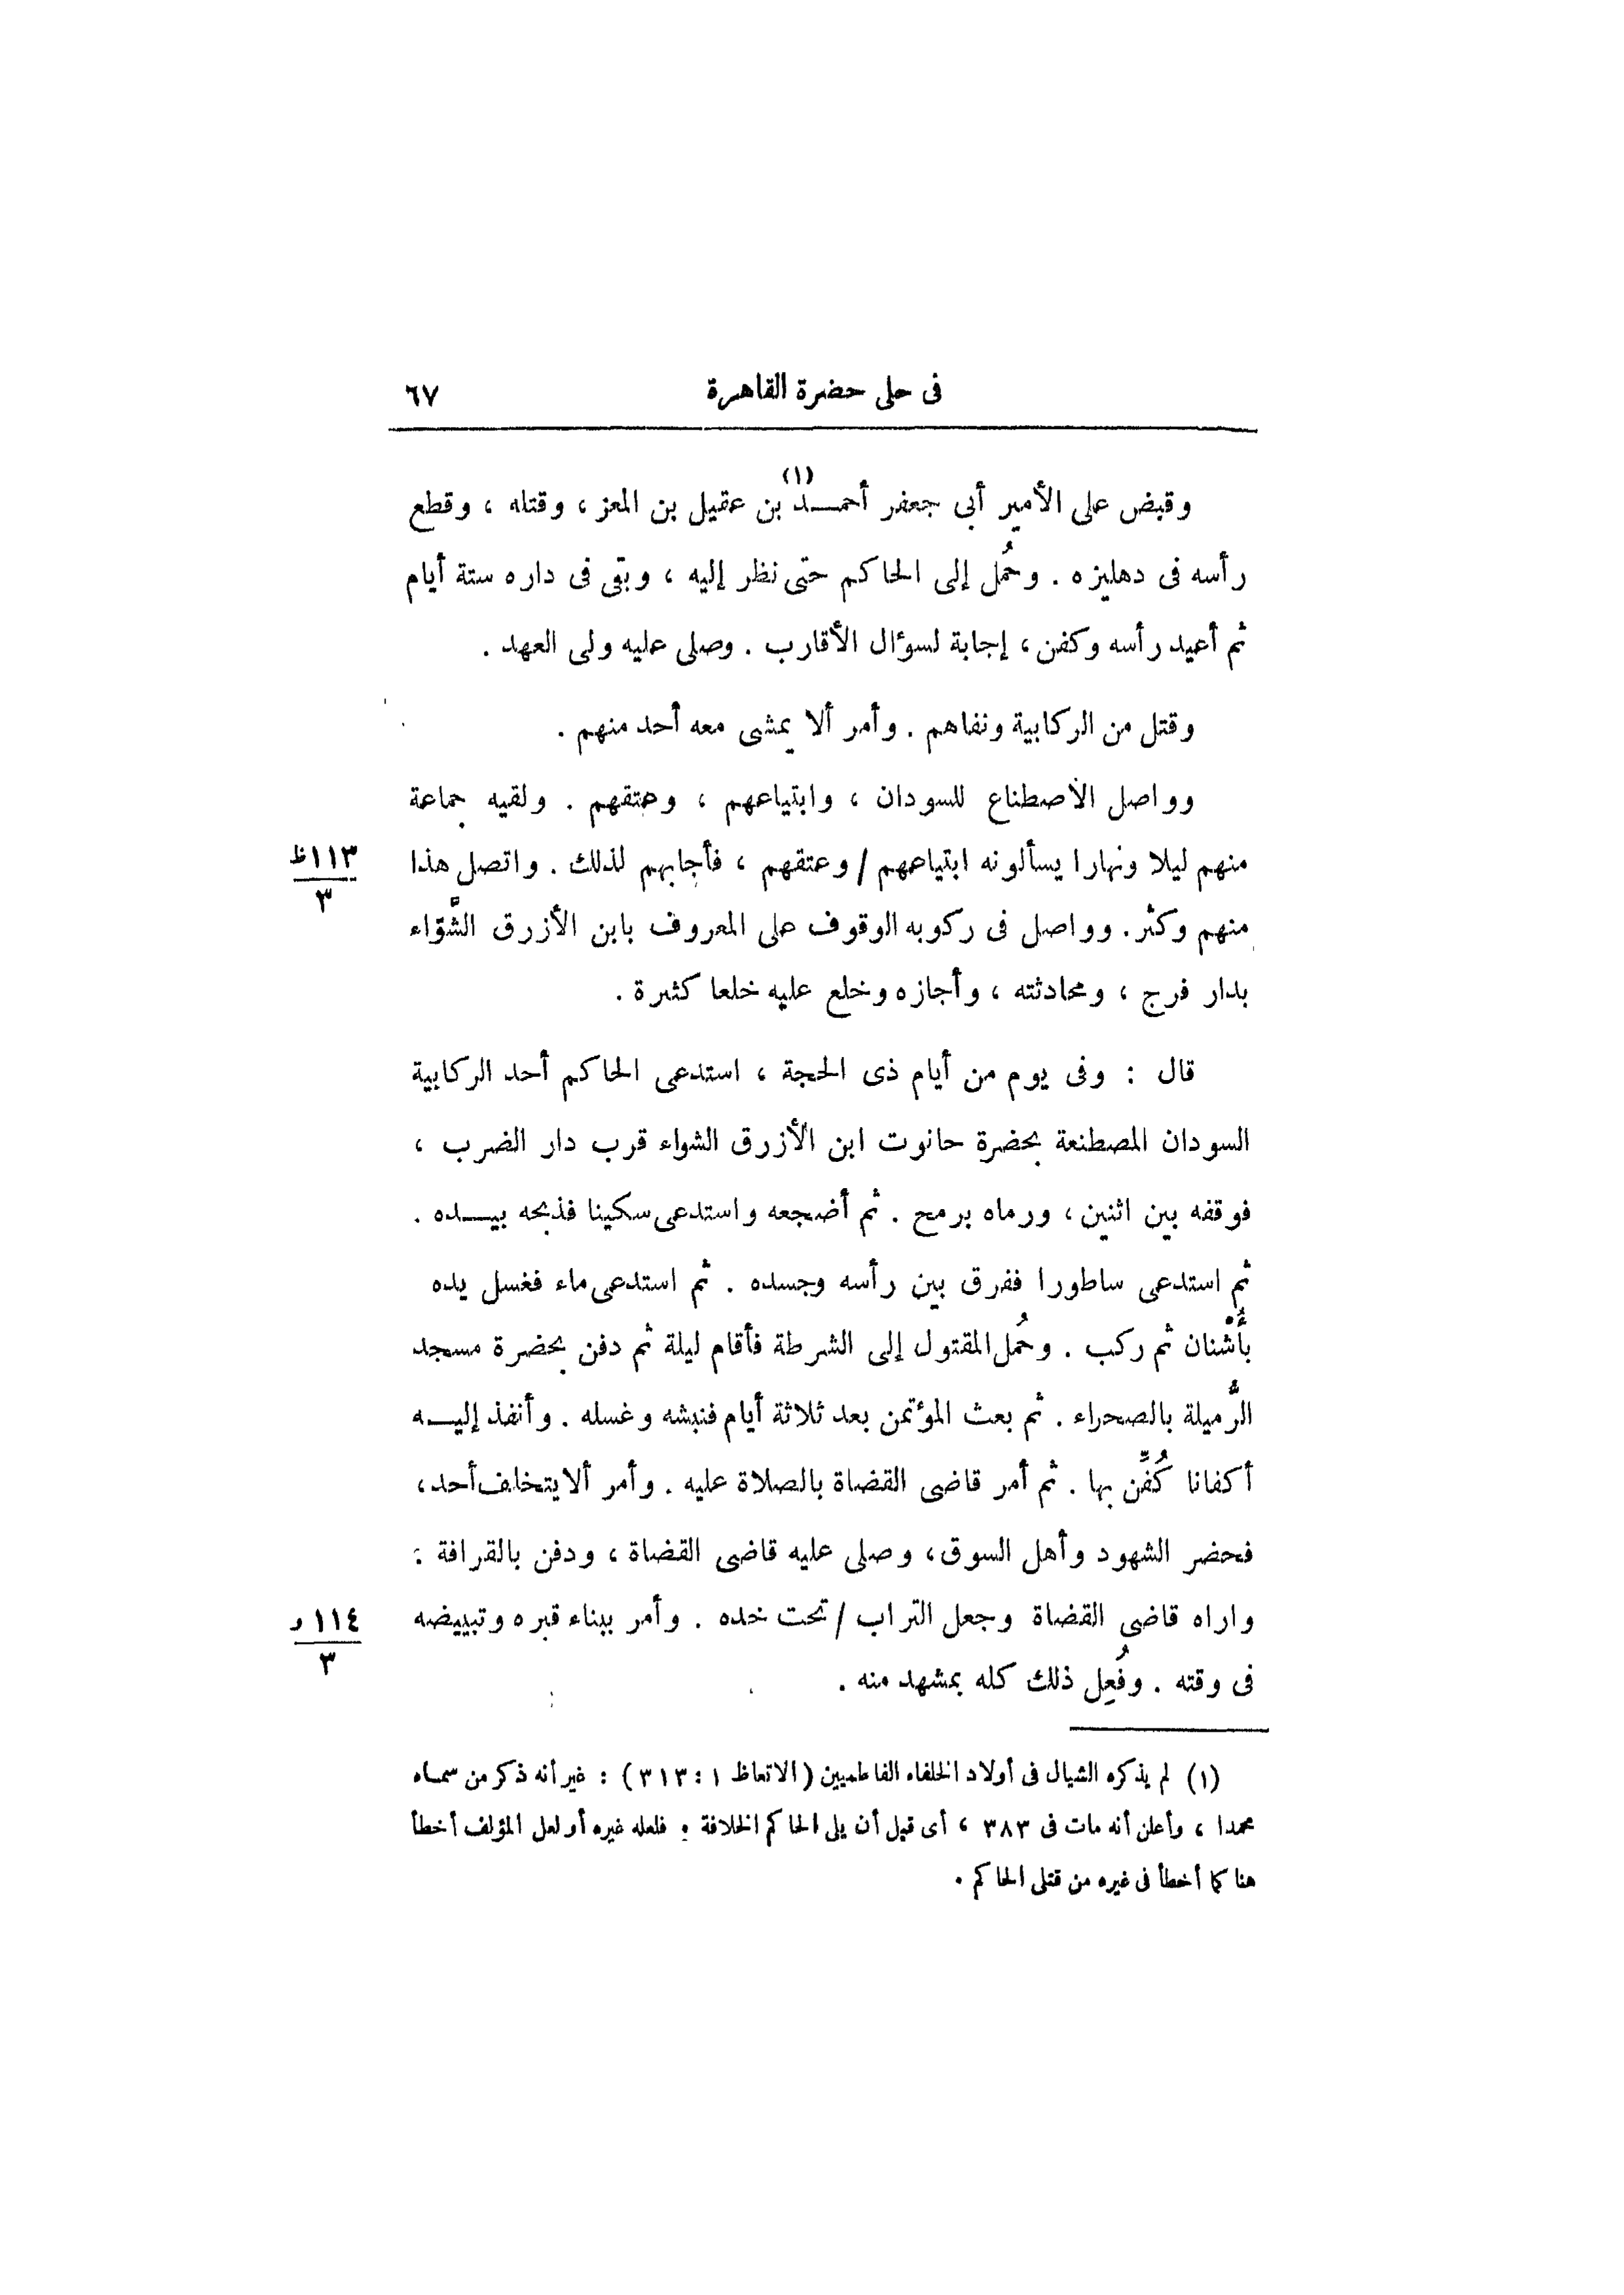 فى حلى حضرة القاهرة ٦٧
وقبض على الأمير أبى جعفر أحمـــد(١) بن عقيل بن المعز ، وقتله ، وقطع
رأسه فى دهليزه . وحُمل إلى الحاكم حتى نظر إليه ، وبقى فى داره ستة أيام
ثم أعيد رأسه وكفن ، إجابة لسؤال الأقارب . وصلى عليه ولى العهد .
وقتل من الركابية ونفاهم . وأمر ألا يمشى معه أحد منهم .
وواصل الاصطناع للسودان ، وابتياعهم ، وعتقهم . ولقيه جماعة
منهم ليلا ونهارا يسألونه ابتياعهم / وعتقهم ، فأجابهم لذلك . واتصل هذا
١١٣ظ
٣
منهم وكثر . وواصل فى ركوبه الوقوف على المعروف بابن الأزرق الشَّوّاء
بدار فرج ، ومحادثته ، وأجازه وخلع عليه خلعا كثيرة .
قال : وفى يوم من أيام ذى الحجة ، استدعى الحاكم أحد الركابية
السودان المصطنعة بحضرة حانوت ابن الأزرق الشواء قرب دار الضرب ،
فوقفه بين اثنين ، ورماه برمح . ثم أضجعه واستدعى سكينا فذبحه بيـــده .
ثم استدعى ساطورا ففرق بين رأسه وجسده . ثم استدعى ماء فغسل يده
بأُشْنان ثم ركب . وحُمل المقتول إلى الشرطة فأقام ليلة ثم دفن بحضرة مسجد
الرُّميلة بالصحراء . ثم بعث المؤتمن بعد ثلاثة أيام فنبشه وغسله . وأنفذ إليـــه
أكفانا كُفِّن بها . ثم أمر قاضى القضاة بالصلاة عليه . وأمر ألا يتخلف أحد ،
فحضر الشهود وأهل السوق ، وصلى عليه قاضى القضاة ، ودفن بالقرافة :
واراه قاضى القضاة وجعل التراب / تحت خده . وأمر ببناء قبره وتبييضه
١١٤ و
٣
فى وقته . وفُعِل ذلك كله بمشهد منه .
(١) لم يذكره الشيال فى أولاد الخلفاء الفاطميين ( الاتعاظ ١ : ٣١٣ ) : غير أنه ذكر من سمـاه
محمدا ، وأعلن أنه مات فى ٣٨٣ ، أى قبل أن يلى الحاكم الخلافة : فلعله غيره أو لعل المؤلف أخطأ
هنا كما أخطأ فى غيره من قتلى الحاكم .